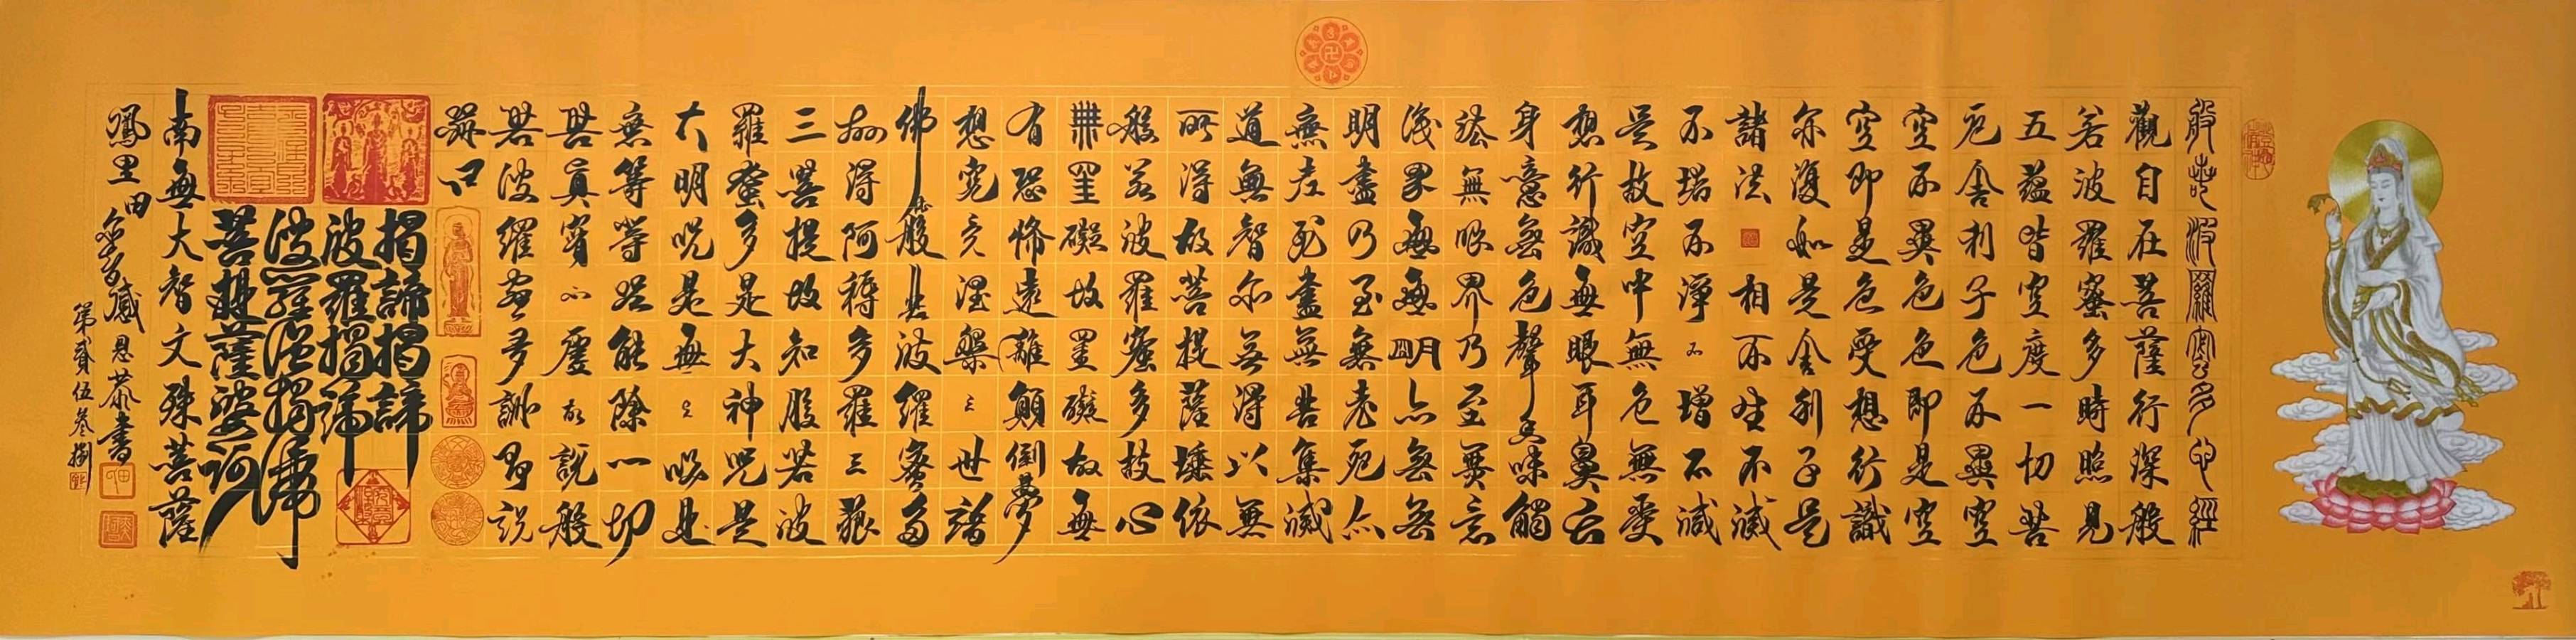 般若波羅蜜多心經
觀自在菩薩行深般
若波羅蜜多時照見
五蘊皆空度一切苦
厄舍利子色不異空
空不異色色即是空
空即是色受想行識
亦復如是舍利子是
諸法相不生不滅
不垢不淨不增不減
是故空中無色無受
想行識無眼耳鼻舌
身意無色聲香味觸
法無眼界乃至無意
識界無無明亦無無
明盡乃至無老死亦
無老死盡無苦集滅
道無智亦無得以無
所得故菩提薩埵依
般若波羅蜜多故心
無罣礙故罣礙故無
有恐怖遠離顛倒夢
想究竟涅槃三世諸
佛依般若波羅蜜多
故得阿耨多羅三藐
三菩提故知般若波
羅蜜多是大神咒是
大明咒是無上咒是
無等等咒能除一切
苦真實不虛故說般
若波羅蜜多咒即說
咒曰
揭諦揭諦
波羅揭諦
波羅僧揭諦
菩提薩婆訶
南無大智文殊菩薩
鳳里田感恩恭書
第貳伍叁捌